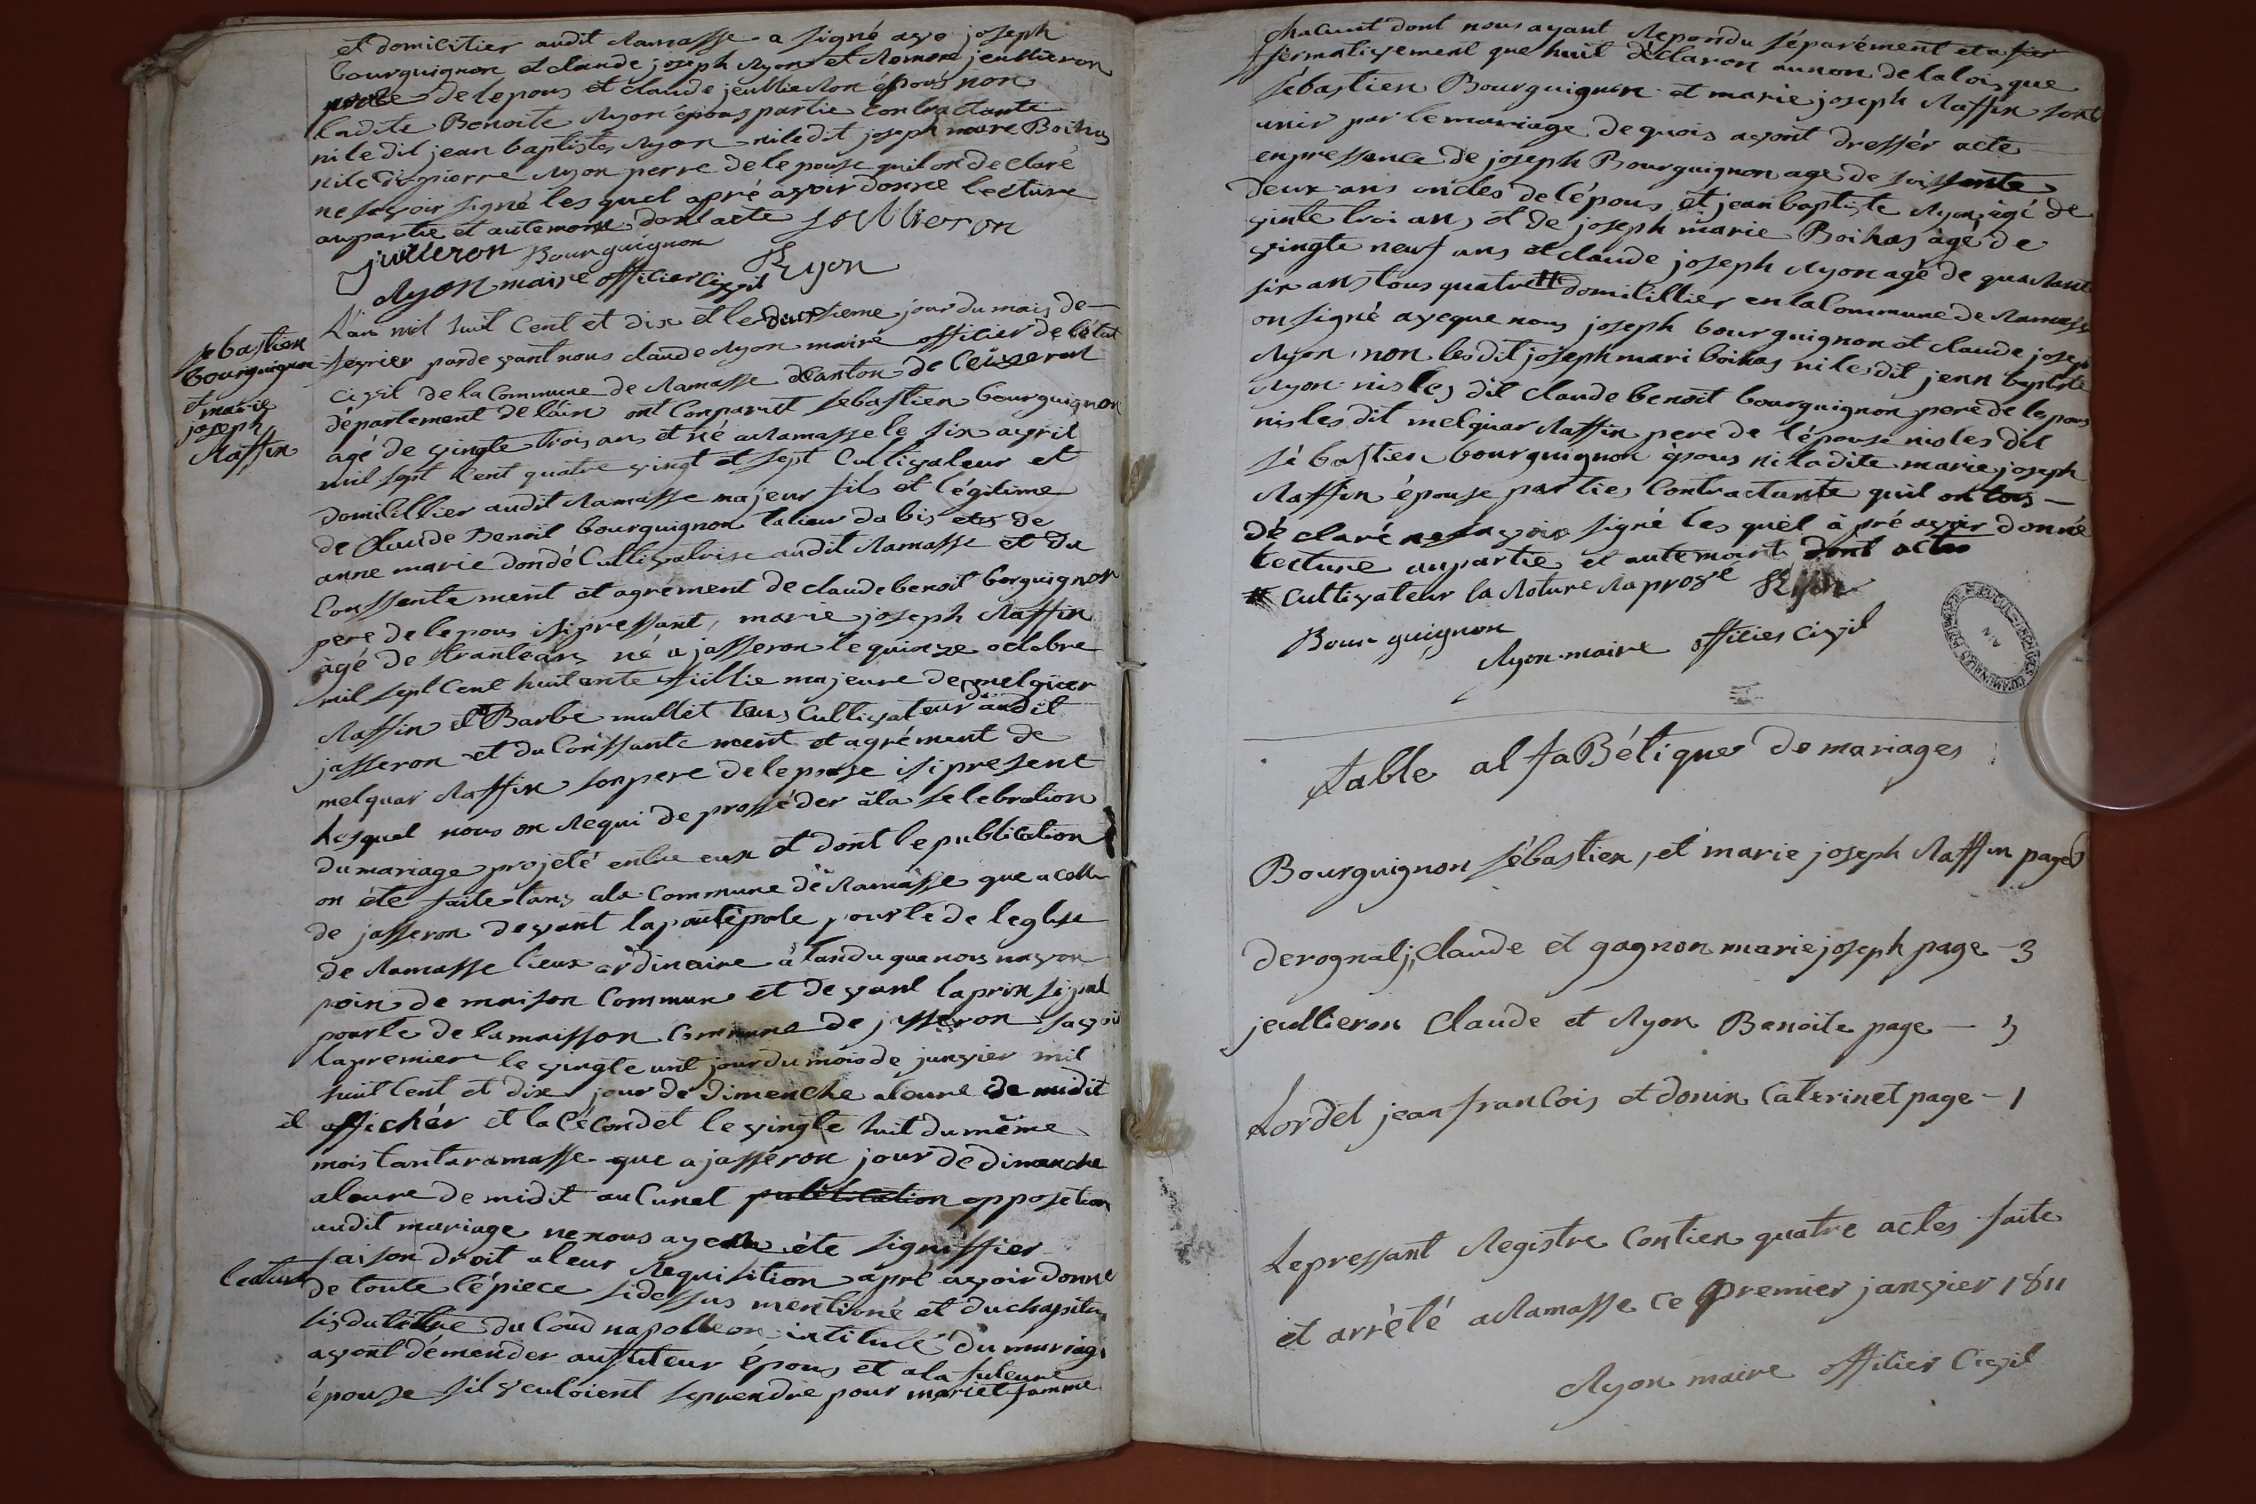 et domicitier audit Ramasse a signé ave joseph
bourguignon et claude joseph Ryon et Romen jeullieron
de lepous et claude jeullieron épous non
ladite Benoite Ryon épous partie Contractante
ni le dit jean baptiste Ryon ni ledit joseph marie Boihas
ni le dit pierre Ryon perre de lepouse quil on declaré
ne savoir signé les quel apré avoir donné lecture
aupartie et autemoin dont acte jeullieron
juilleron Bourguignon Ryon
Ryon maire offitier civil
sebastien
bourguignon
et marie
joseph
Raffin
L'an mil huit Cent et dix et le deuxsieme jour du mais de
fevrier par devant nous claude Ryon maire offitier de létat
civil de la Commune de Ramasse Canton de Ceuzeront
département de lain ont Comparut sebastien bourguignon
agé de vingte trois ans et né a Ramasse le six avril
mil sept Cent quatre vingt et sept Cultivateur et
domilillier audit Ramasse majeur fils et légitime
de Claude Benoit bourguignon talieur dabis et de
anne marie dondé Cultivatrise audit Ramasse et du
Conssentement et agrément de claude benoit borguignon
pere de lepous isi pressant, marie joseph Raffin
agé de trante ans né a jasseron le quinze octobre
mil sept Cent huitante fillie majeure de melguar
Raffin et Barbe mullet tous Cultivateur audit
jasseron et du Conssante ment et agrément de
melquar Raffin son pere de lepouse isi present
Lesquel nous on Requi de prosséder à la selebration
du mariage projeté entre eux et dont le publication
on éte faite tans ala Commune de Ramasse que a celle
de jasseron devant la porte de leglise
de Ramasse lieux ordinaire atandu que nous navon
poin de maison Commune et devant la prinsipal
pourte de la maisson Commune de jasseron savoir
lapremier le vingte unt jour du mois de janvier mil
huit Cent et dix jour de dimenche aleure de midit
et affichér et la Cécondet le vingte huit du même
mois tant a ramasse que a jasseron jour de dimanche
aleure de midit auCunet publication opposetion
audit mariage ne nous ayent été signiffier
faison droit a leur Requisition apré avoir donné
lecture de toute lépiece sidessus mentioné et du chapitre
sis du titre du Coud napolleon intitulé du mariage
avont démender aufuteur épous et ala futeure
épouse sil vouloient seprendre pour mari et famme
chacunt dont nous ayant Repondu séparément et a fer
fermativement que huit déclaron aunon de la loi que
sébastien Bourguignon et marie joseph Raffin sont
unir par le mariage de quois avont dressér acte
enpressence de joseph Bourguignon age de soissante
deux ans oncles de l'épous et jean baptiste Ryon agé de
vinte troi ans et de joseph marie Boihas àgé de
vingte neuf ans et claude joseph Ryon agé de quarante
six ans tous quatre # domilillier en la Commune de Ramasse
on signé aveque nous joseph bourguignon et claude joseph
Ryon, non les dit joseph mari boihas ni les dit jean baptiste
Ryon nis les dit claude benoit bourguignon pere de lepous
nis les dit melquar Raffin pere de l'épouse nis les dit
sébastien bourguignon épous ni la dite marie joseph
Raffin épouse partie Contractante quil on tous
déclaré ne savoir signé les quel à pré avoir donné
lecture aupartie et autemoint dont acte
# Cultivateur la Roture Raprové Ryon
Bourguignon
Ryon maire offitier civil
table alfaBétique de mariages
Bourguignon sébastien, et marie joseph Raffin page
derognat, Claude et gagnon marie joseph page - 3
jeullieron Claude et Ryon Benoite page -
Lordet jean franCois et donin Caterinet page - 1
Le pressant Registre Contien quatre actes faite
et arrêté a Ramasse Ce premier janvier 1811
Ryon maire offitier Civil